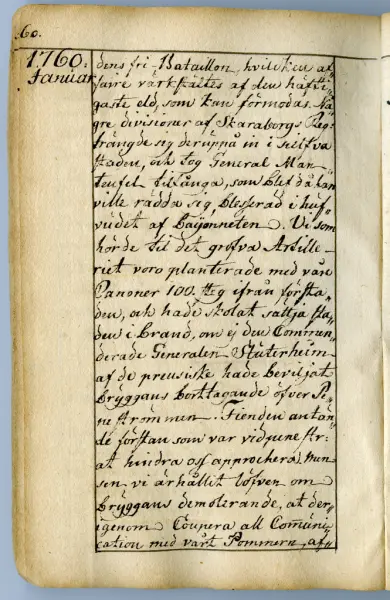 60.
1760.
Januari
dens fri-Bataillon, hvilcken af
faire värkstältes af den häfti
gaste eld, som kan förmodas. Nå
gre divisioner af Skaraborgs Reg:
trängde sig deruppå in i sielfva
staden, och tog General Man
teufel tillfånga, som blef då han
ville rädda sig blesserad i huf
vudet af Baÿonneten. Vi som
hörde til det grofva Artille
riet voro planterade med våre
Canoner 100. steg ifrån första
den, och hade skolat sättja sta
den i brand, om ej den Commen
derade Generalen Stuterheim
af de preusiske hade beviljat
bryggans borttagande öfver Pe
ne strömmen. Fienden antän
de förstan som var vid pene str:
at hindra oss approchera, men
sen vi ärhållit löfven om
bryggans demolerande, at der
igenom Coupera all Comuni
cation med vårt Pommern, af